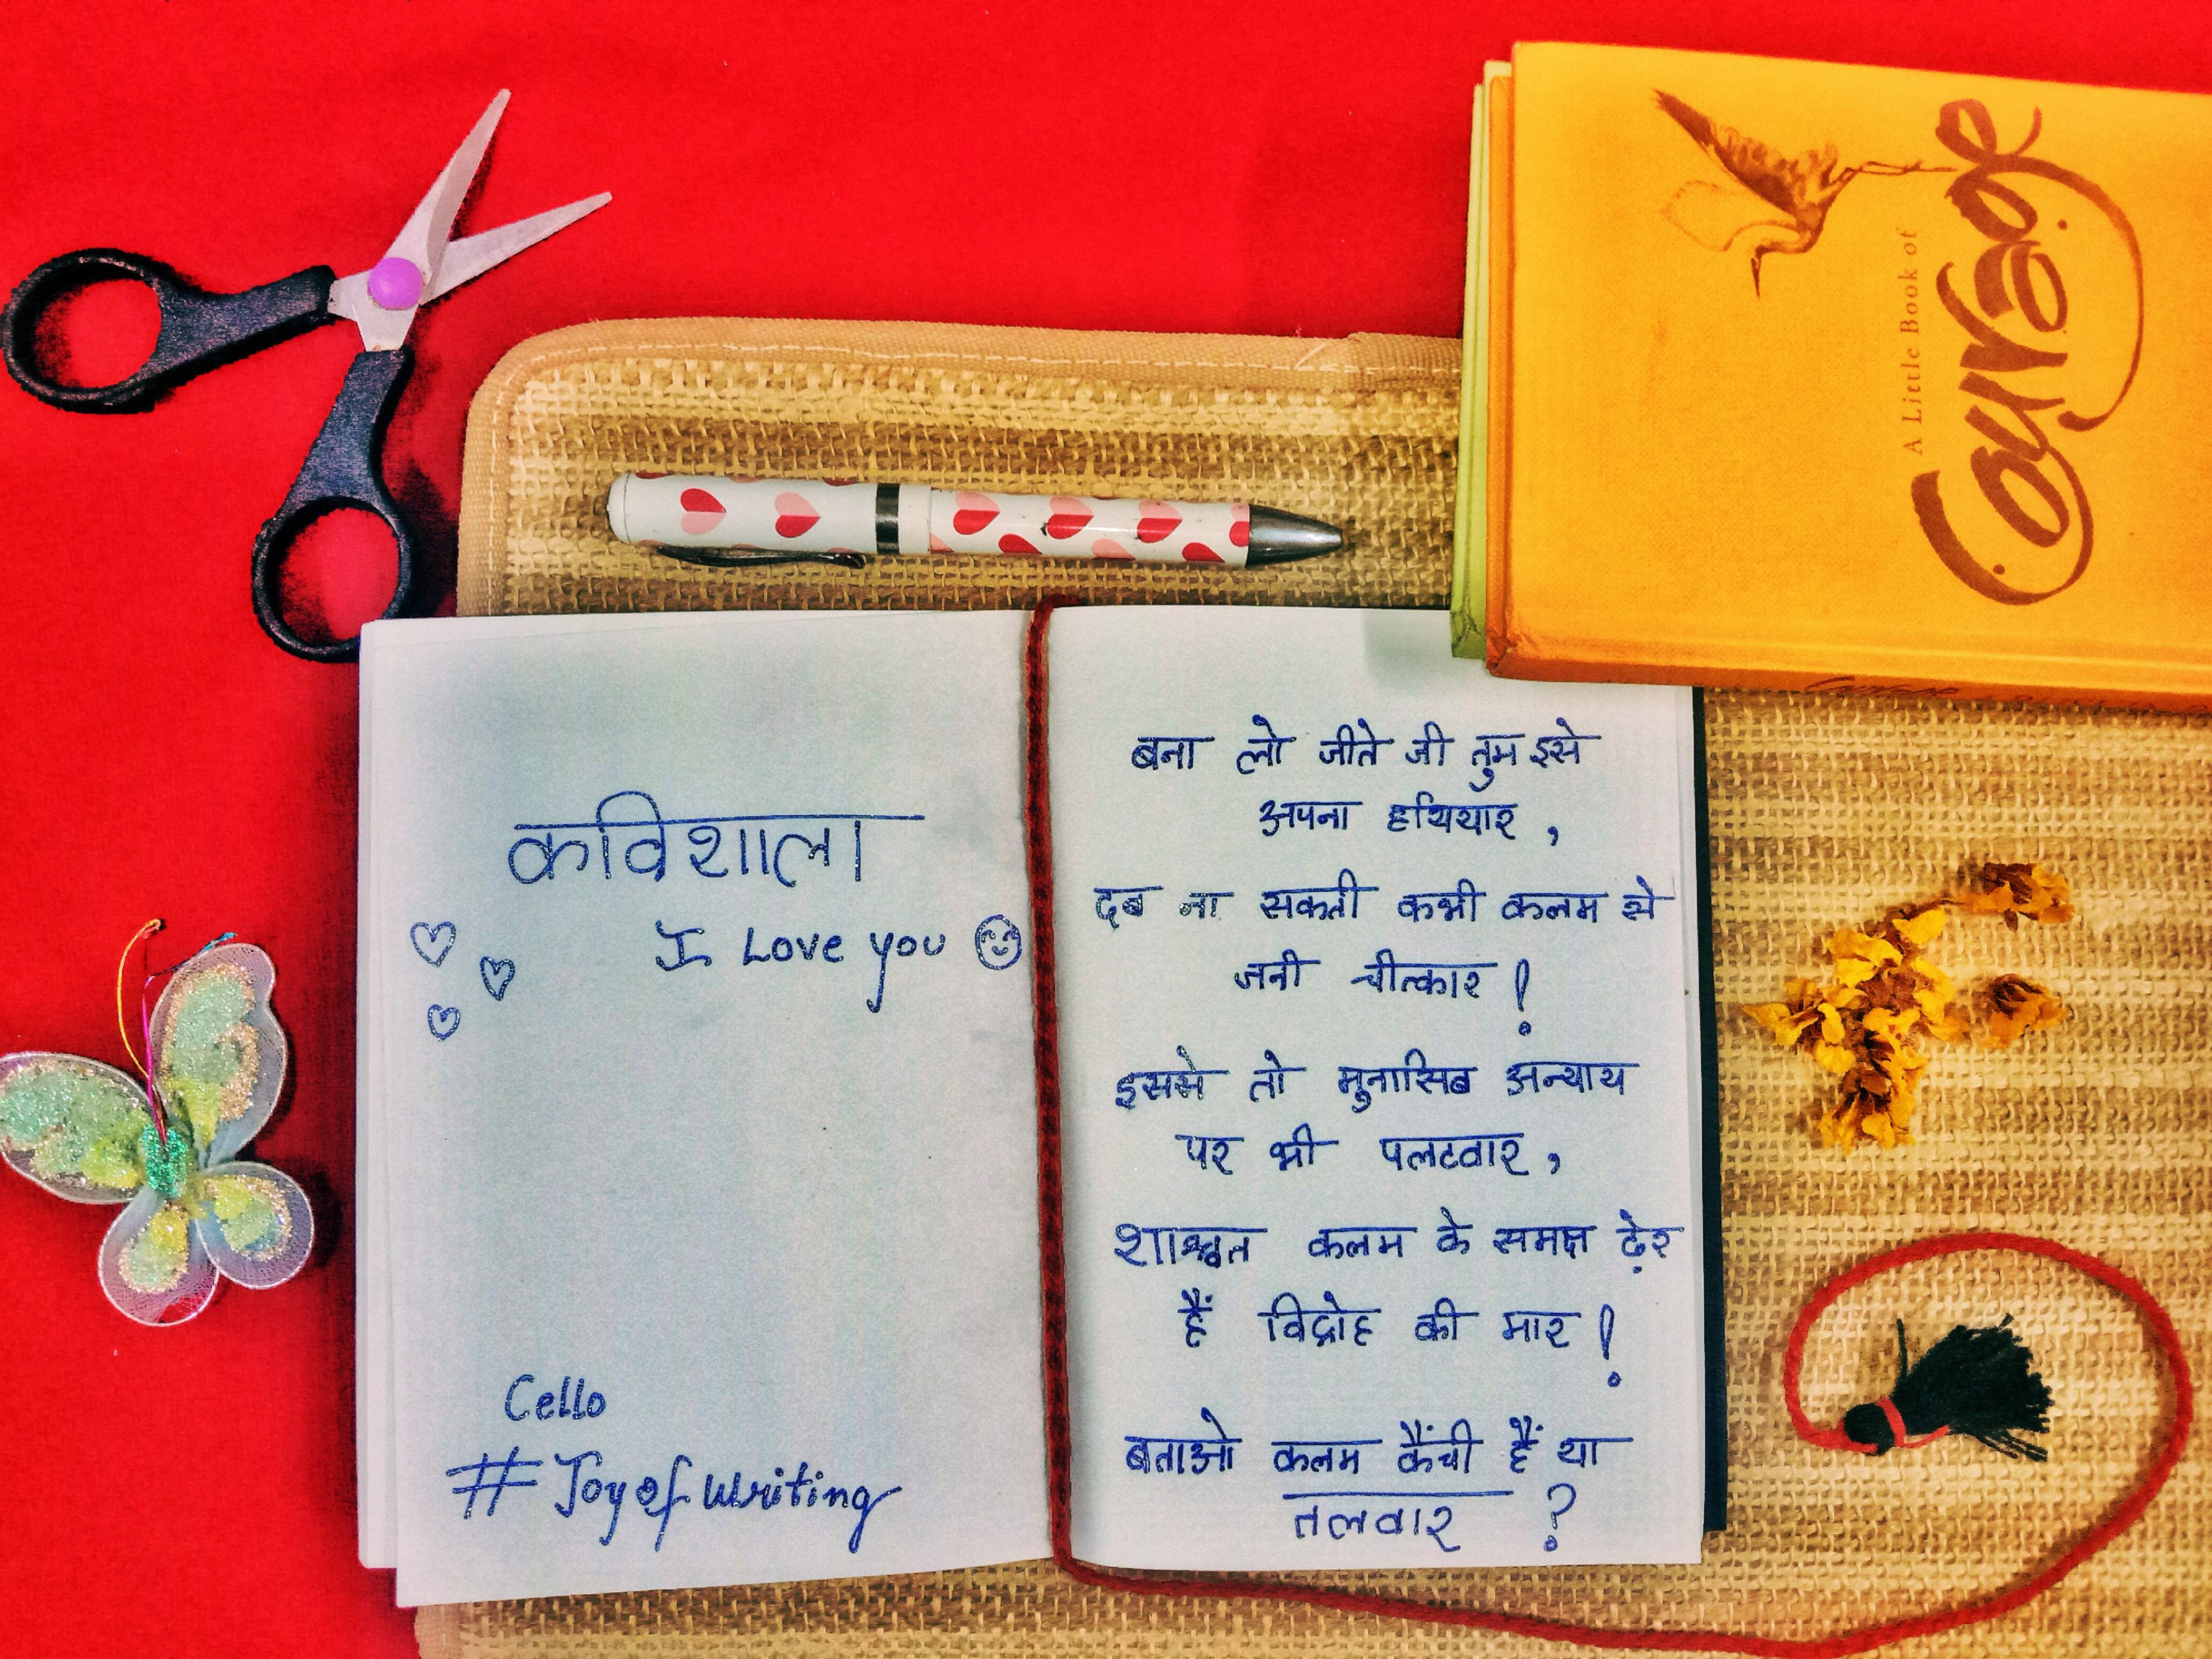 A Little Book of
Courage
कविशाला
I Love you
Cello
#JoyofWriting
बना लो जीते जी तुम इसे
अपना हथियार,
दब ना सकती कभी कलम से
जनी चीत्कार!
इससे तो मुनासिब अन्याय
पर भी पलटवार,
शाश्वत कलम के समक्ष ढ़ेर
हैं विद्रोह की मार!
बताओ कलम कैंची हैं या
तलवार ?